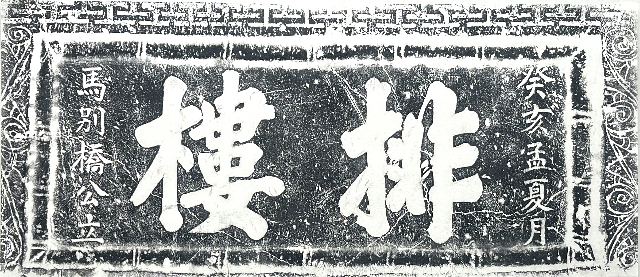 癸亥孟夏月
排樓
馬別橋公立